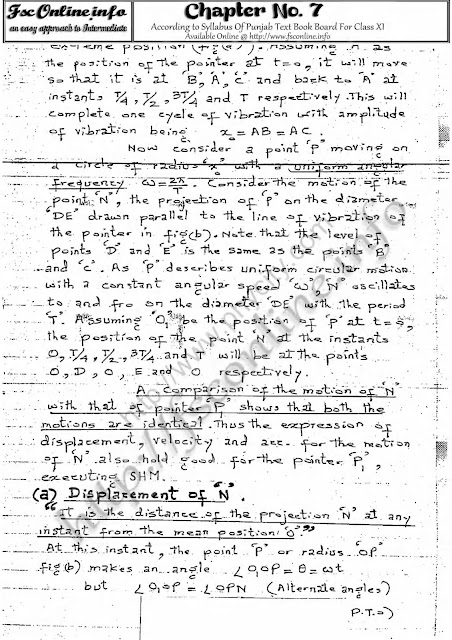 Fsc Online.info
an easy approach to Intermediate
Chapter No. 7
According to Syllabus Of Punjab Text Book Board For Class XI
Available Online @ http://www.fsconline.info
extreme position (fig(a)). Assuming 'A' as
the position of the pointer at t=0, it will move
so that it is at 'B', 'A', 'C' and back to 'A' at
instants T/4, T/2, 3T/4 and T respectively. This will
complete one cycle of vibration with amplitude
of vibration being x₀ = AB = AC.
Now consider a point 'P' moving on
a circle of radius 'x₀' with a uniform angular
frequency ω = 2π/T. Consider the motion of the
point 'N', the projection of 'P' on the diameter
'DE' drawn parallel to the line of vibration of
the pointer in fig(b). Note that the level of
points 'D' and 'E' is the same as the points 'B'
and 'C'. As 'P' describes uniform circular motion
with a constant angular speed 'ω', 'N' oscillates
to and fro on the diameter 'DE' with the period
'T'. Assuming 'O₁' be the position of 'P' at t=0,
the position of the point 'N' at the instants
0, T/4, T/2, 3T/4 and T will be at the points
O, D, O, E and O respectively.
A comparison of the motion of 'N'
with that of pointer 'P' shows that both the
motions are identical. Thus the expression of
displacement, velocity and acc. for the motion
of 'N' also hold good for the pointer 'P',
executing SHM.
(a) Displacement of 'N'.
"It is the distance of the projection 'N' at any
instant from the mean position 'O'."
At this instant, the point 'P' or radius 'OP'
fig(b) makes an angle ∠O₁OP = θ = ωt
but ∠O₁OP = ∠OPN (Alternate angles)
P.T.O
http://fsconline.info